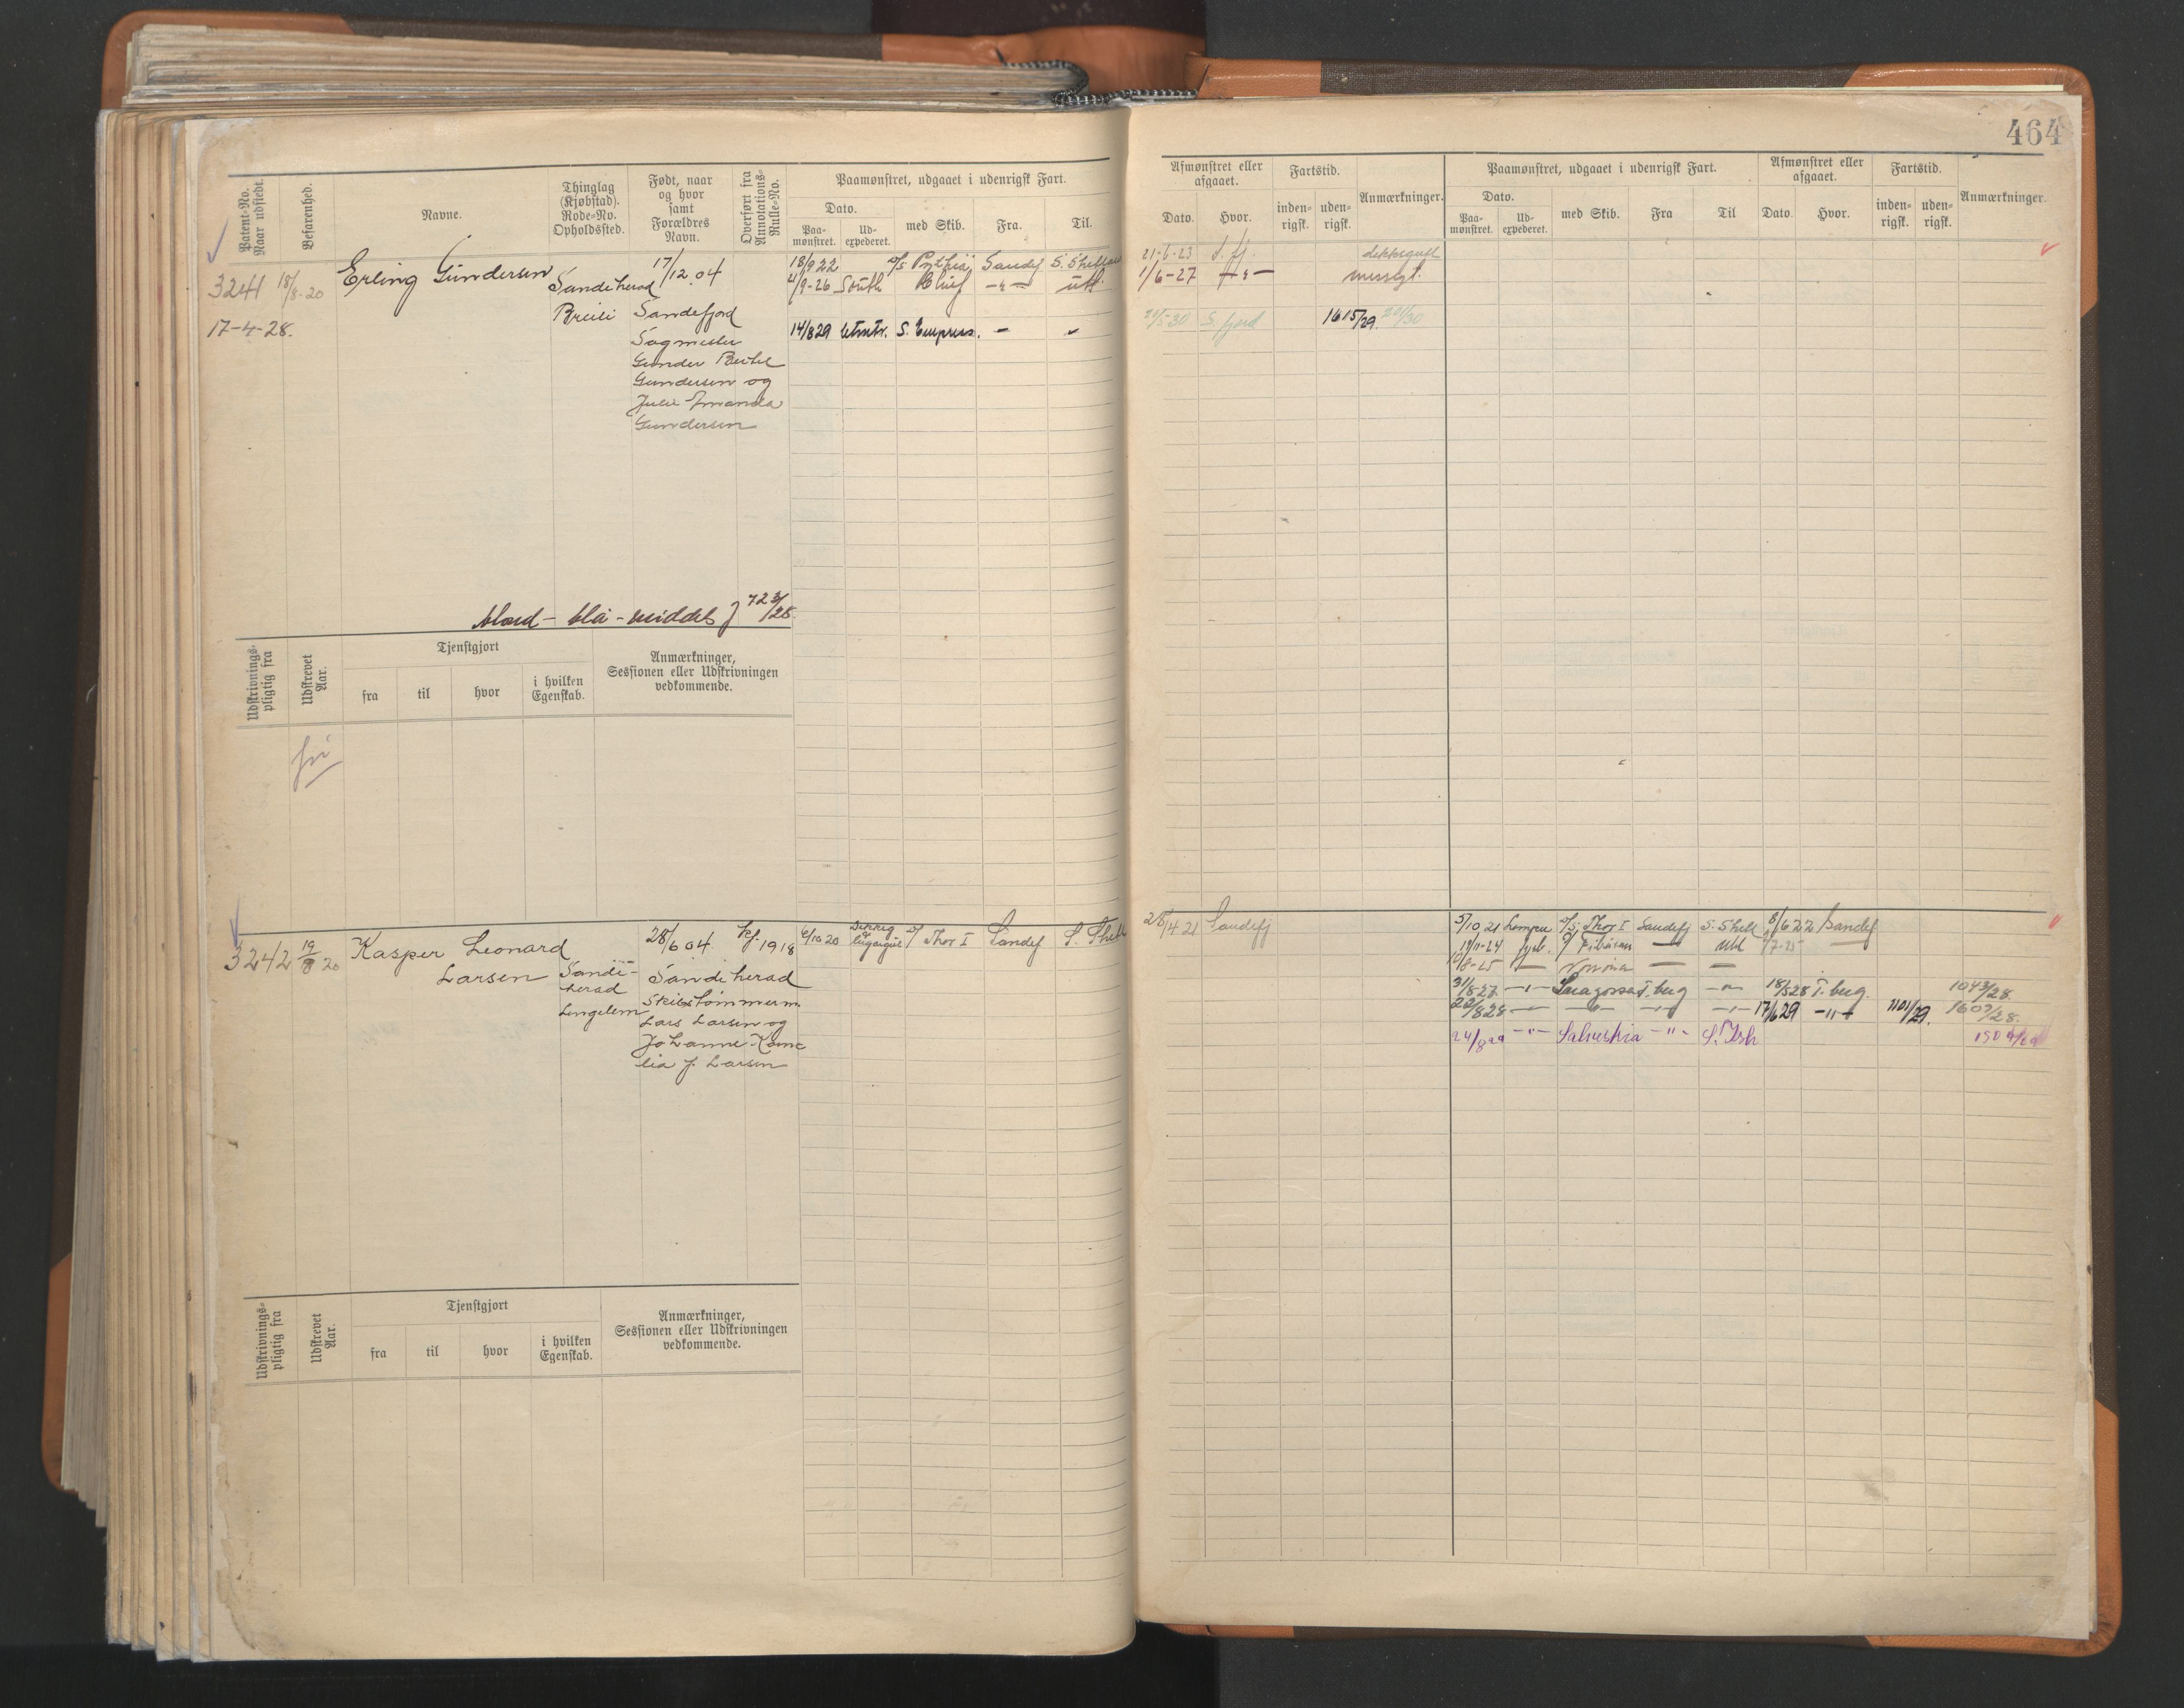 464
Patent-No. Naar udstedt.
Befarenhed.
Navne.
Thinglag (Kjøbstad). Rode-No. Opholdssted.
Født, naar og hvor samt Forældres Navn.
Overført fra Annotations-Rulle-No.
Paamønstret, udgaaet i udenrigsk Fart.
Dato.
Paa-mønstret.
Ud-expederet.
med Skib.
Fra.
Til.
Afmønstret eller afgaaet.
Dato.
Hvor.
Fartstid.
inden-rigsk.
uden-rigsk.
Anmærkninger.
Paamønstret, udgaaet i udenrigsk Fart.
Dato.
Paa-mønstret.
Ud-expederet.
med Skib.
Fra
Til
Afmønstret eller afgaaet.
Dato.
Hvor.
Fartstid.
inden-rigsk.
uden-rigsk.
Anmærkninger.
3241 18/8-20 Erling Gundersen Sandeherad 17/12.04
18/9 22 Pythia Sandefj S. Shetland 21-6-23 S.fj.
4/9-26 South Chief -"- utl. 1/6-27 -"- messegt.
17-4-28. Sandefjord
14/8 29 S. Empress. - 5-30 S. fjord 1615/29
Gunder
Gundersen og
Julie Amanda
Gundersen
blond - blå - middels J 723/28
Udskrivnings-pligtig fra
Udskrevet Aar.
Tjenstgjort
fra
til
hvor
i hvilken Egenskab.
Anmærkninger, Sessionen eller Udskrivningen vedkommende.
3242 19/8 20 Kasper Leonard
Larsen
Sande-
herad
28/6 04. kf. 1918
Sandeherad
Skibstømmerm.
Lars Larsen og
Johanne Korne
lia J. Larsen
6/10 20 Thor I Sandefj S. Shetl
28/4 21 Sandefj
5/10 21 Thor I Sandefj S. Shetl 8/6 22 Sandefj
19/11-24 fyrb. Utl 7-25
/8-25 - - -
31/8-27 -"- Saragossa T.berg -"- 18/5 28 T.berg. 1043/28.
22/8 28 -"- -"- -"- -"- 17/6 29 -"- 1101/29. 1609/28.
24/8 29 -"- -"- S. Ish
Udskrivnings-pligtig fra
Udskrevet Aar.
Tjenstgjort
fra
til
hvor
i hvilken Egenskab.
Anmærkninger, Sessionen eller Udskrivningen vedkommende.